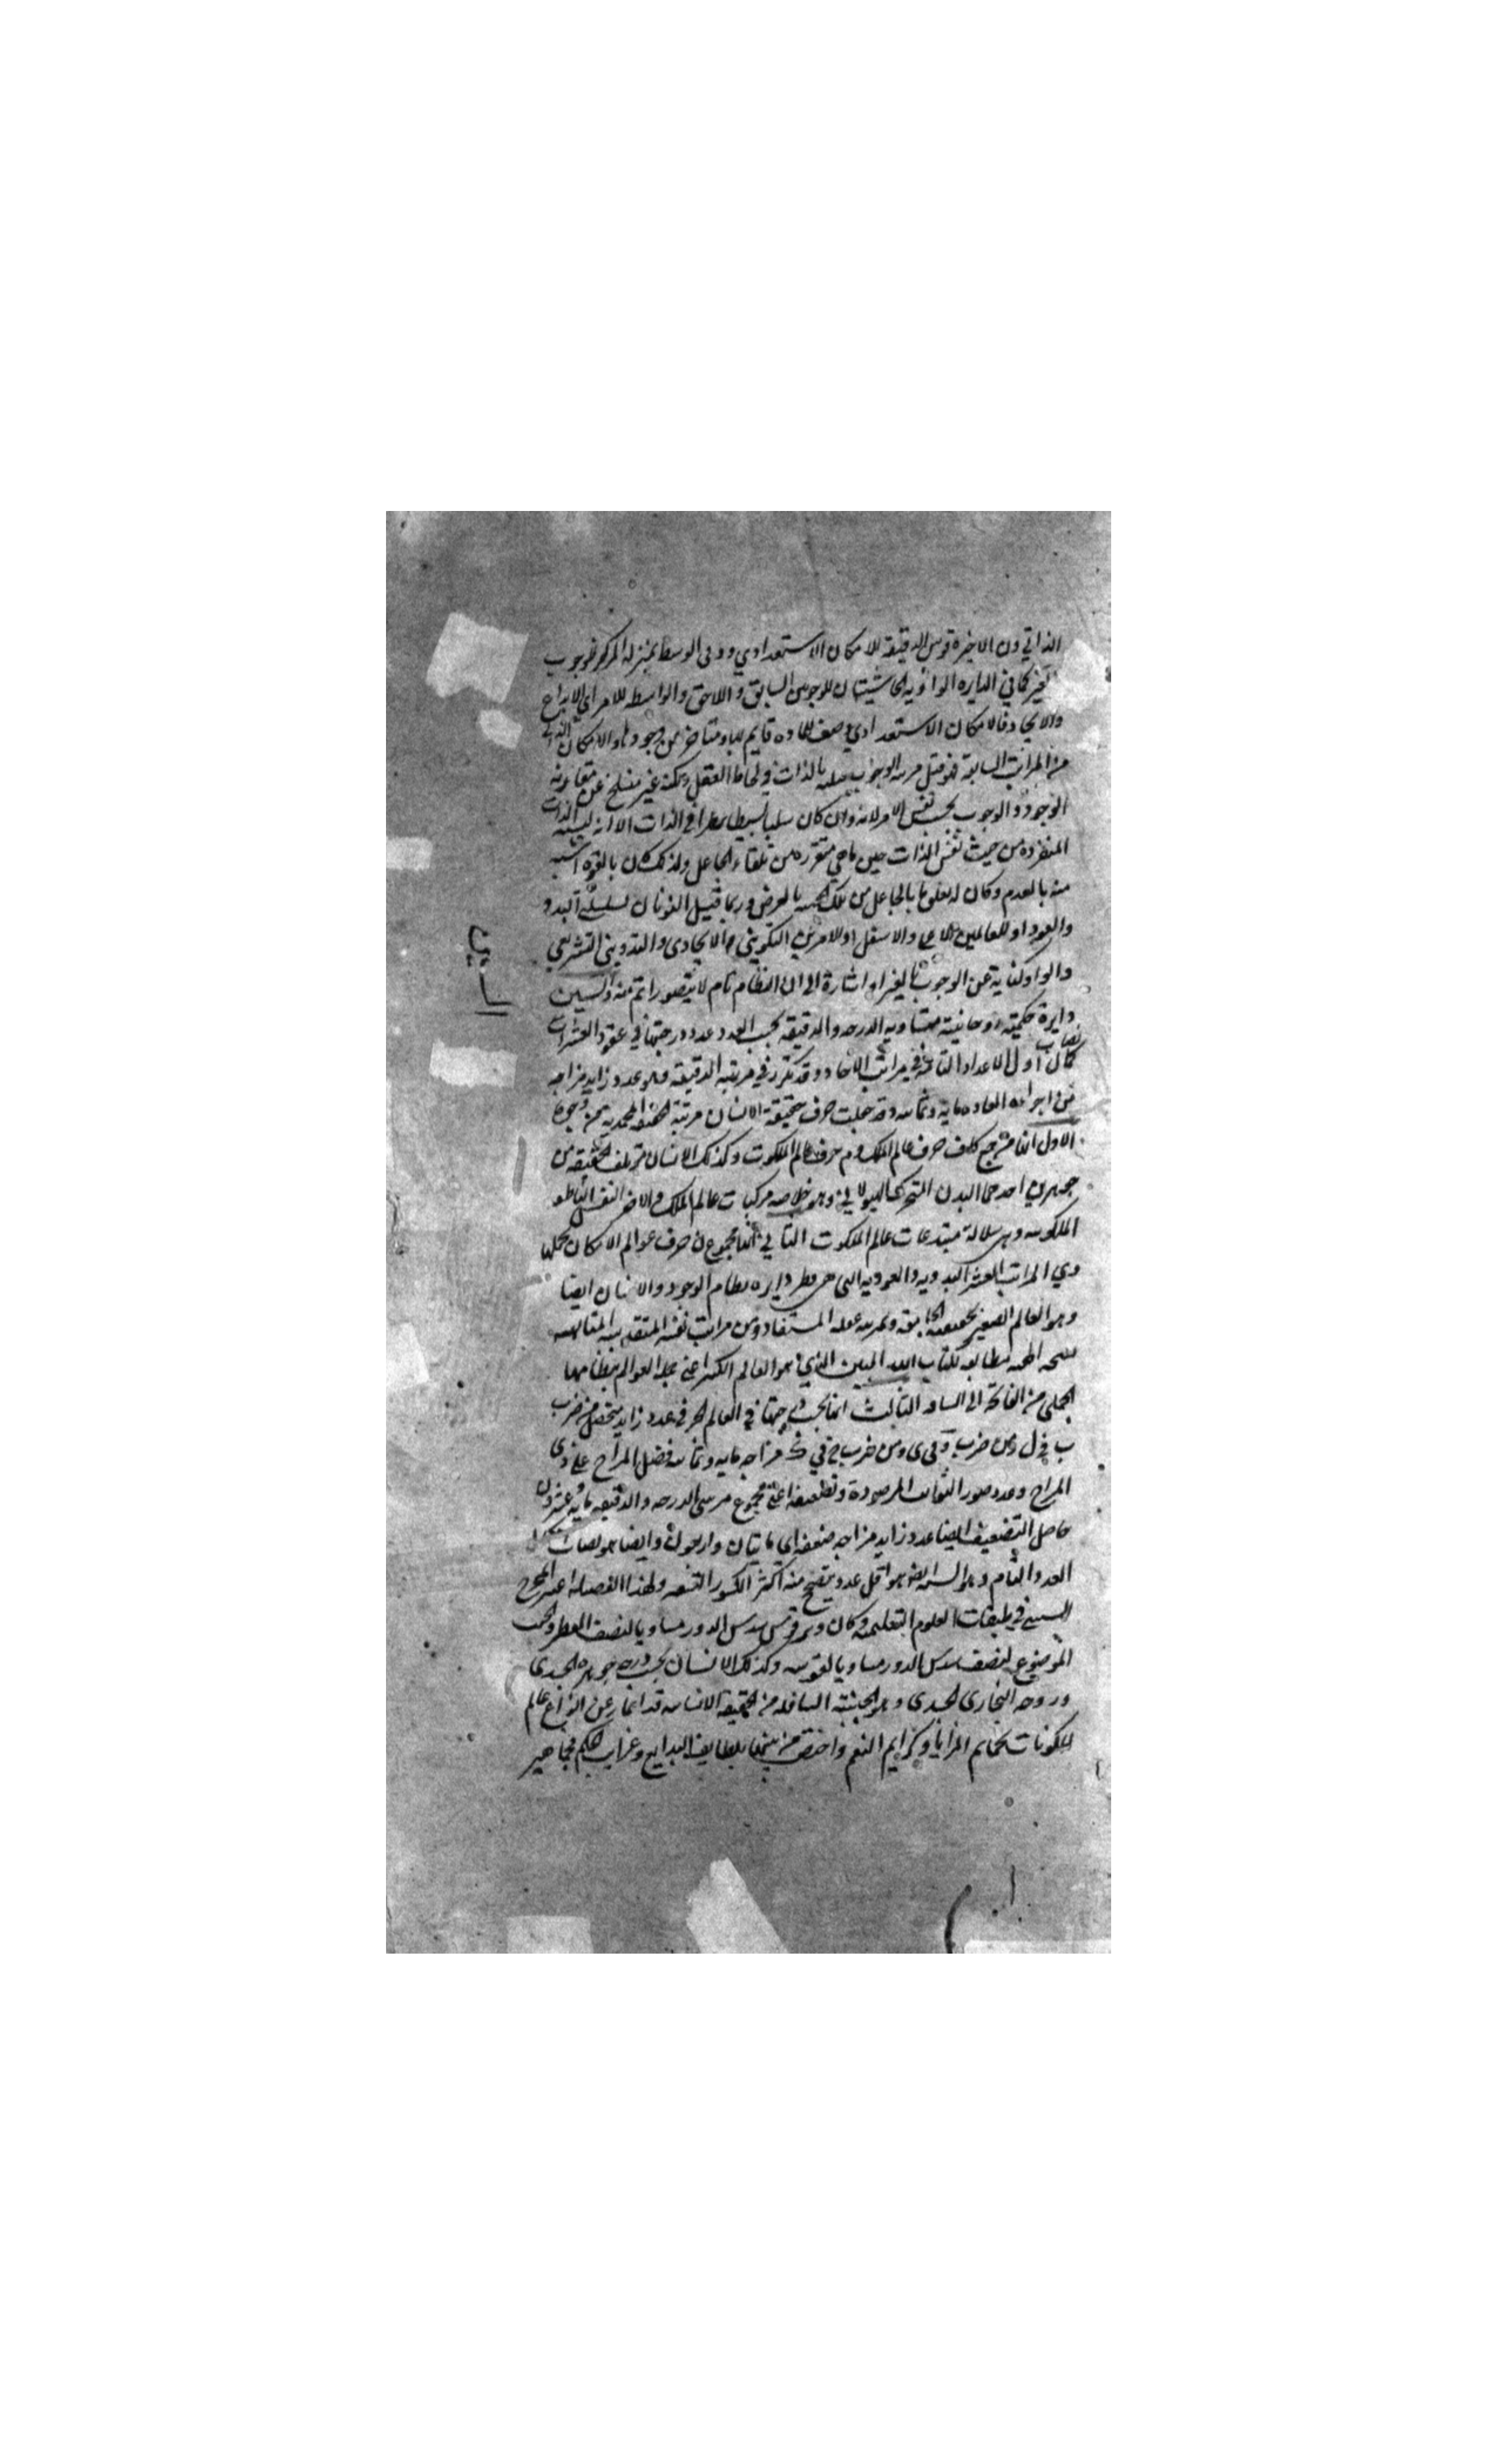 الذاتي ون الاخيرة قوس الدقيقة للامكان الاستعدادي وو في الوسط بمنزلة المركز لوجوب
كما في الدايرة الواوية الحاشيتان للوجوبين السابق و اللاحق والواسطه للامر اي الابداع
والايجاد فالامكان الاستعدادي وصف للماده قايم بها ومتاخر من وجودها والامكان الذاتي
من المراتب السابقة فهو قبل مرتبه الوجوب بالذات في لحاظ العقل ولكنه غير منسلخ عن مقارنه
الوجود و الوجوب بحسب نفس الامر لانه وان كان سلبا بسيطا في الذات الا انه ليسيه الذات
المتقررة من حيث نفس الذات حين ما هي متقرره من تلقاء الجاعل ولذلك كان بالقوه اشبه
منه بالعدم وكان له تعلق ما بالجاعل من تلك الجهه بالعرض وربما قيل النونان لسلسلتي البدو
والعود او للعالمين الاعلى والاسفل او للامرين التكويني الايجادي والتدويني التشريعي
والواو كناية عن الوجوب بالغير او اشارة الى ان النظام تام لا يتصور اتم منه والسين
السين
دايرة حكمية روحانية متساويه الدرجه والدقيقه بحسب العدد عدد درجتها في عقود العشرات
نصاب
كمال اول الاعداد التامة في مراتب الاحاد وقد تكرر في مرتبه الدقيقه فهو عدد زايد مزاجه
من اجزائه العاده مايه وثمانيه وقد جعلت حرف حقيقة الانسان مرتبة الحقيقه المحمديه من وجوه
الاول انها مزدوج كاف حرف عالم الملك وم حرف عالم الملكوت وكذلك الانسان مؤتلف الحقيقه من
جوهرين احدهما البدن الهيولاني وهو خلاصه مركبات عالم الملك والاخر النفس الناطقه
الملكوتيه وهي سلالة مبتدعات عالم الملكوت الثاني انها مجموع ن حرف عوالم الامكان بجملتها
وي المراتب العشر البدويه والعوديه التي هي قطر دايره نظام الوجود والانسان ايضا
وهو العالم الصغير بحقيقته الجامعة ومرتبه عقله المستفاد من مراتب نفسه المتقدسه المتالهه
نسخه الهيه مطابقه لكتاب الله المبين الذي هو العالم الكبير اعني جملة العوالم بنظامها
الجملي من الفاتحة الى الساقه الثالث انها بحسب درجتها في العالم الحرفي عدد زايد متحصل من ضرب
ب في ل ومن ضرب و في ي ومن ضرب ج في ك مزاجه مايه وثمانيه فضل المزاج على ذي
المزاج وعدد صور الثوابت المرصودة وتضعيفها اعني مجموع مرتبتي الدرجه والدقيقه مايه وعشرون
حاصل التضعيف ايضا عدد زايد مزاجه ضعفه اي مايتان واربعون وايضا هو نصاب
العدد التام وهو الستة ايضا هو اقل عدد يصح منه اكثر الكسور التسعه ولهذا الفضيله اعتبر المخرج
الستيني في طبقات العلوم التعليمية وكان وتر قوس سدس الدور مساويا لنصف القطر
الموضوع لنصف سدس الدور مساويا لقوسه وكذلك الانسان بحسب درجه جوهره الجسدي
وروحه البخاري الجسدي وهو الجنبة السافله من الحقيقه الانسانيه قد انماز عن انواع عالم
المكونات بكمايم المزايا وكرايم النعم واختص من بينها بلطايف البدايع وغرايب الحكم فجماهير